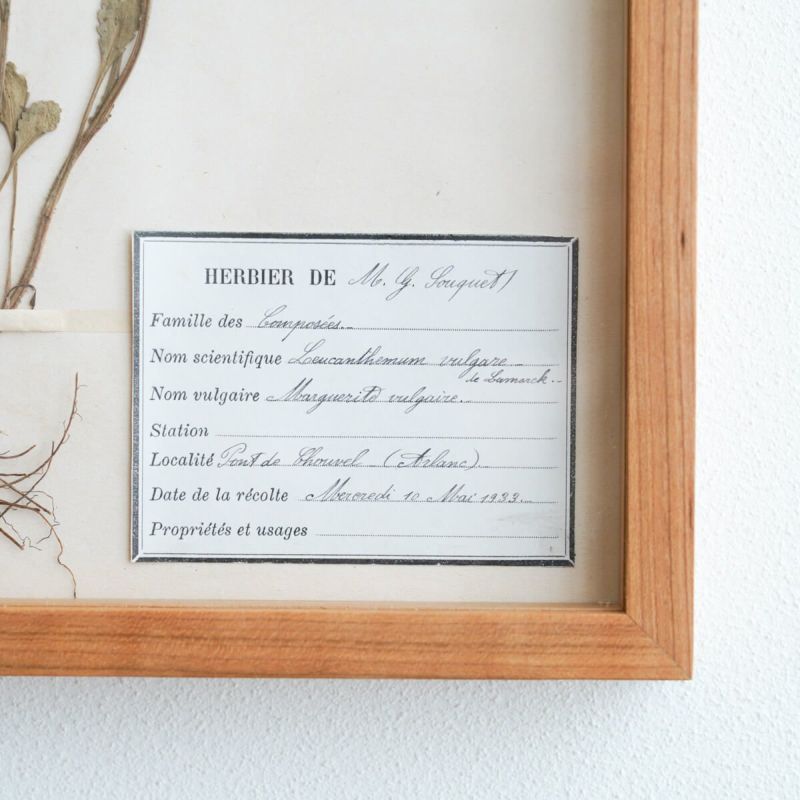 HERBIER DE M. G. Souquet
Famille des Composées
Nom scientifique Leucanthemum vulgare
de Lamarck
Nom vulgaire Marguerite vulgaire.
Station
Localité Pont de Chouvel (Arlanc)
Date de la récolte Mercredi 10 Mai 1933
Propriétés et usages